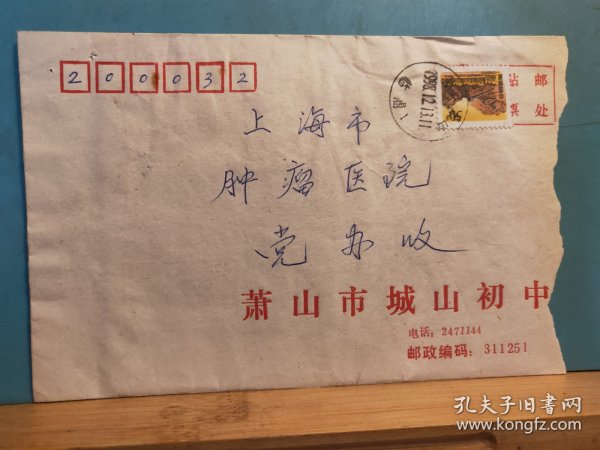 200032
贴邮
票处
1998.12.13.11
50
上海市
肿瘤医院
党办收
萧山市城山初中
电话：2471144
邮政编码：311251
孔夫子旧书网
www.kongfz.com